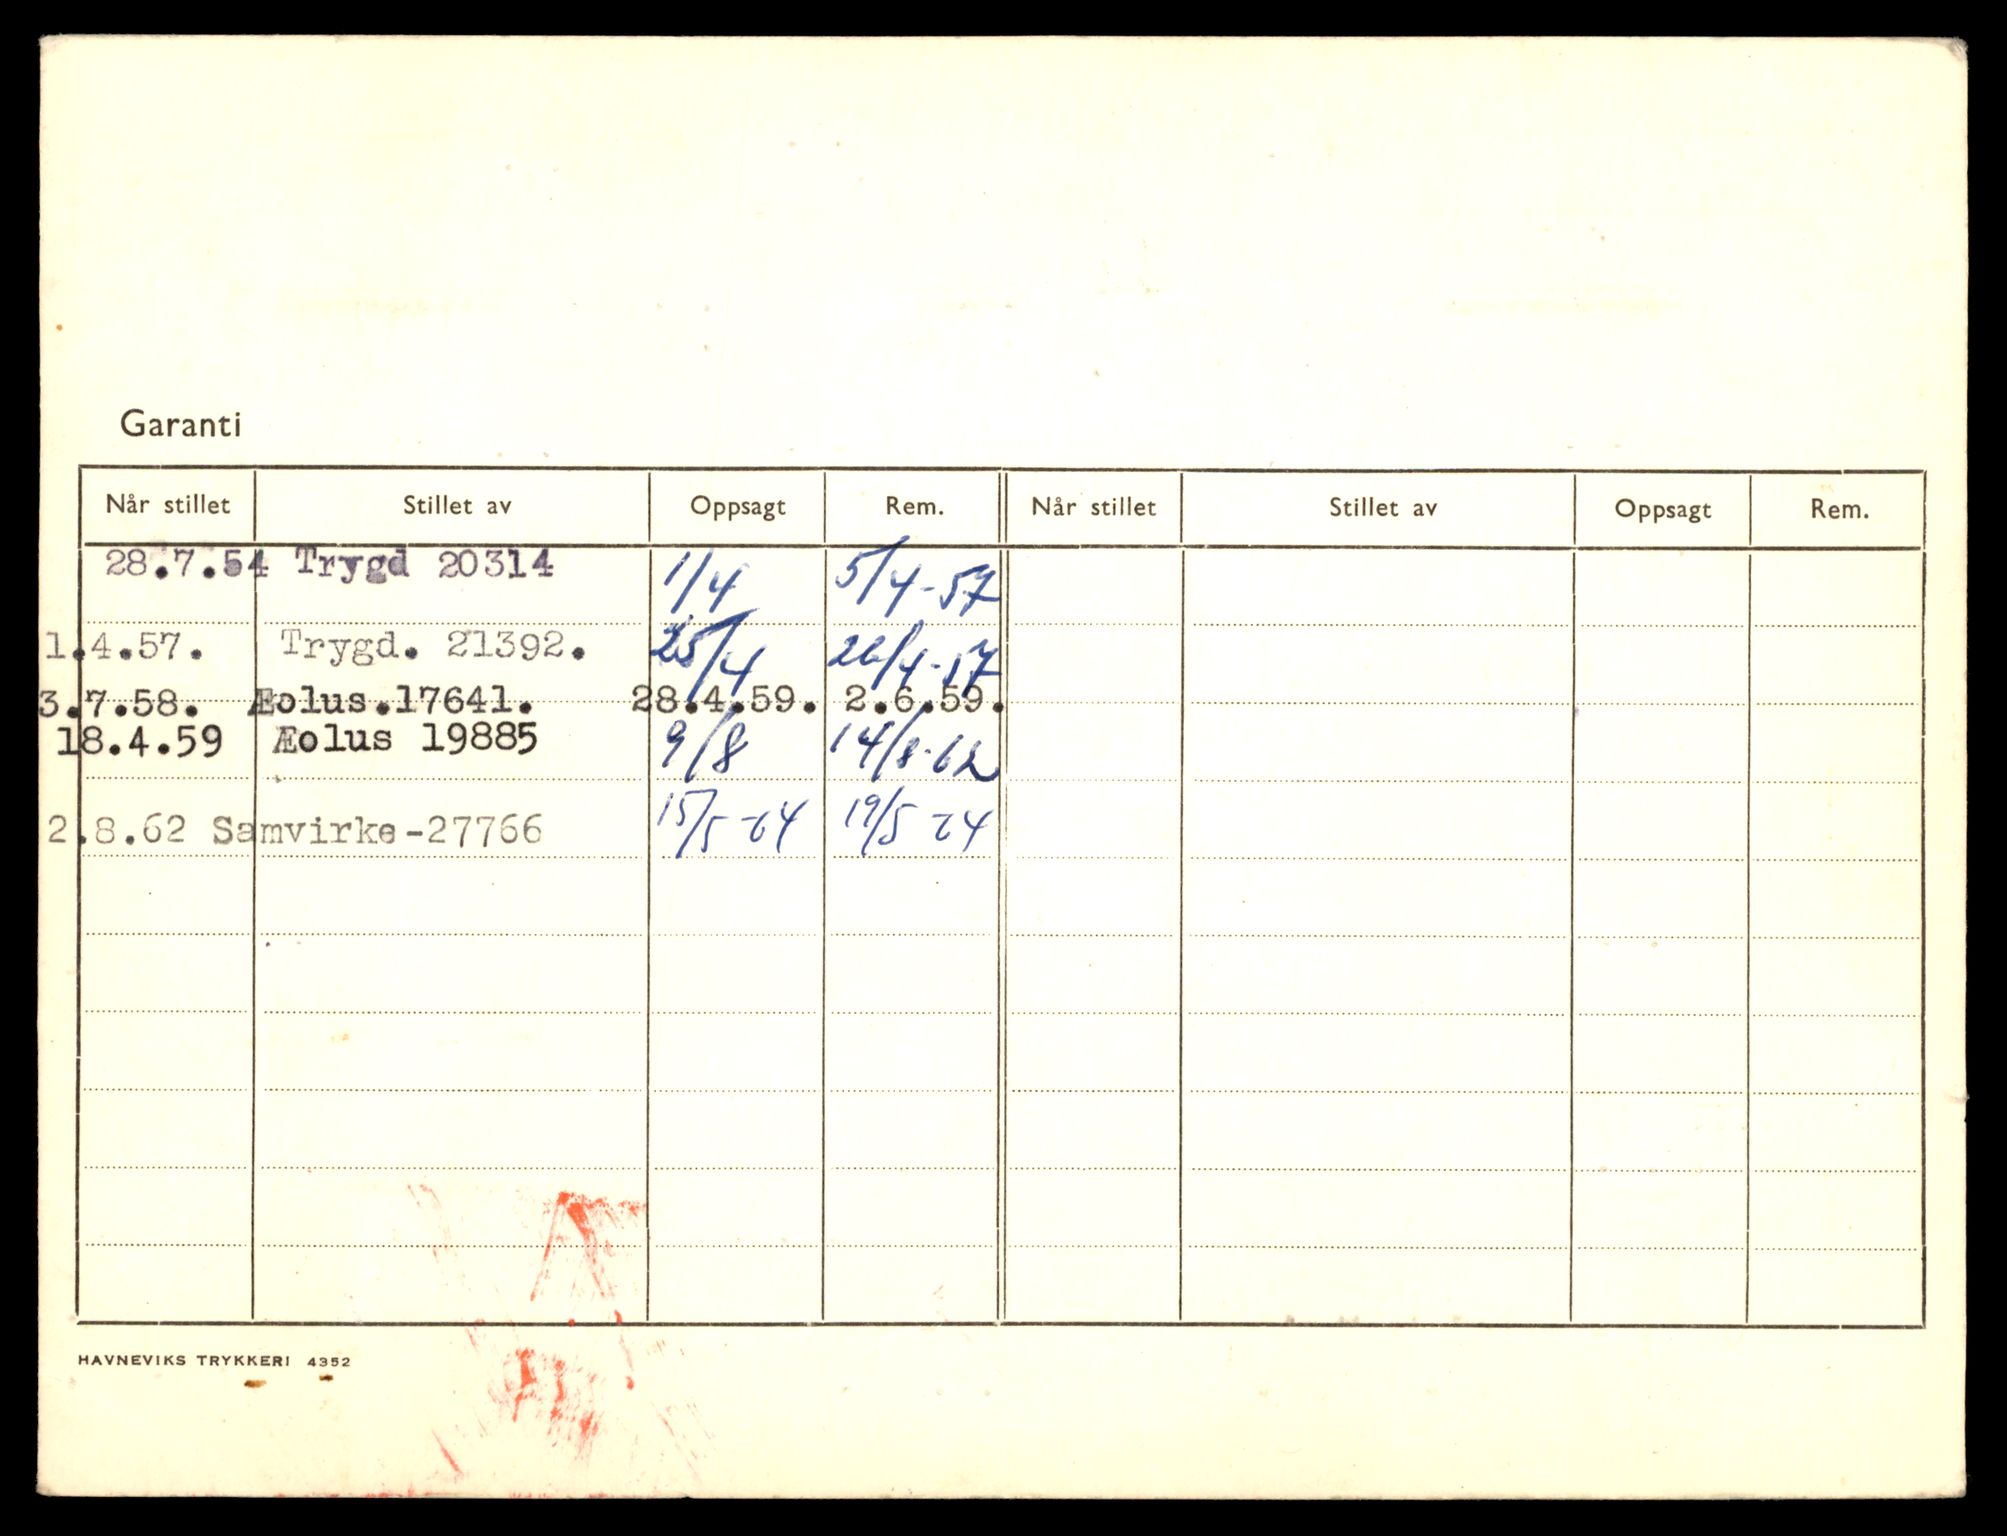 Garanti
Når stillet Stillet av Oppsagt Rem. Når stillet Stillet av Oppsagt Rem.
28.7.54 Trygd 20314 1/4 5/4-57
1.4.57. Trygd. 21392. 25/4 26/4-57
3.7.58. Æolus.17641. 28.4.59. 2.6.59.
18.4.59 Æolus 19885 9/8 14/8-62
2.8.62 Samvirke-27766 15/5-64 19/5 64
HAVNEVIKS TRYKKERI 4352